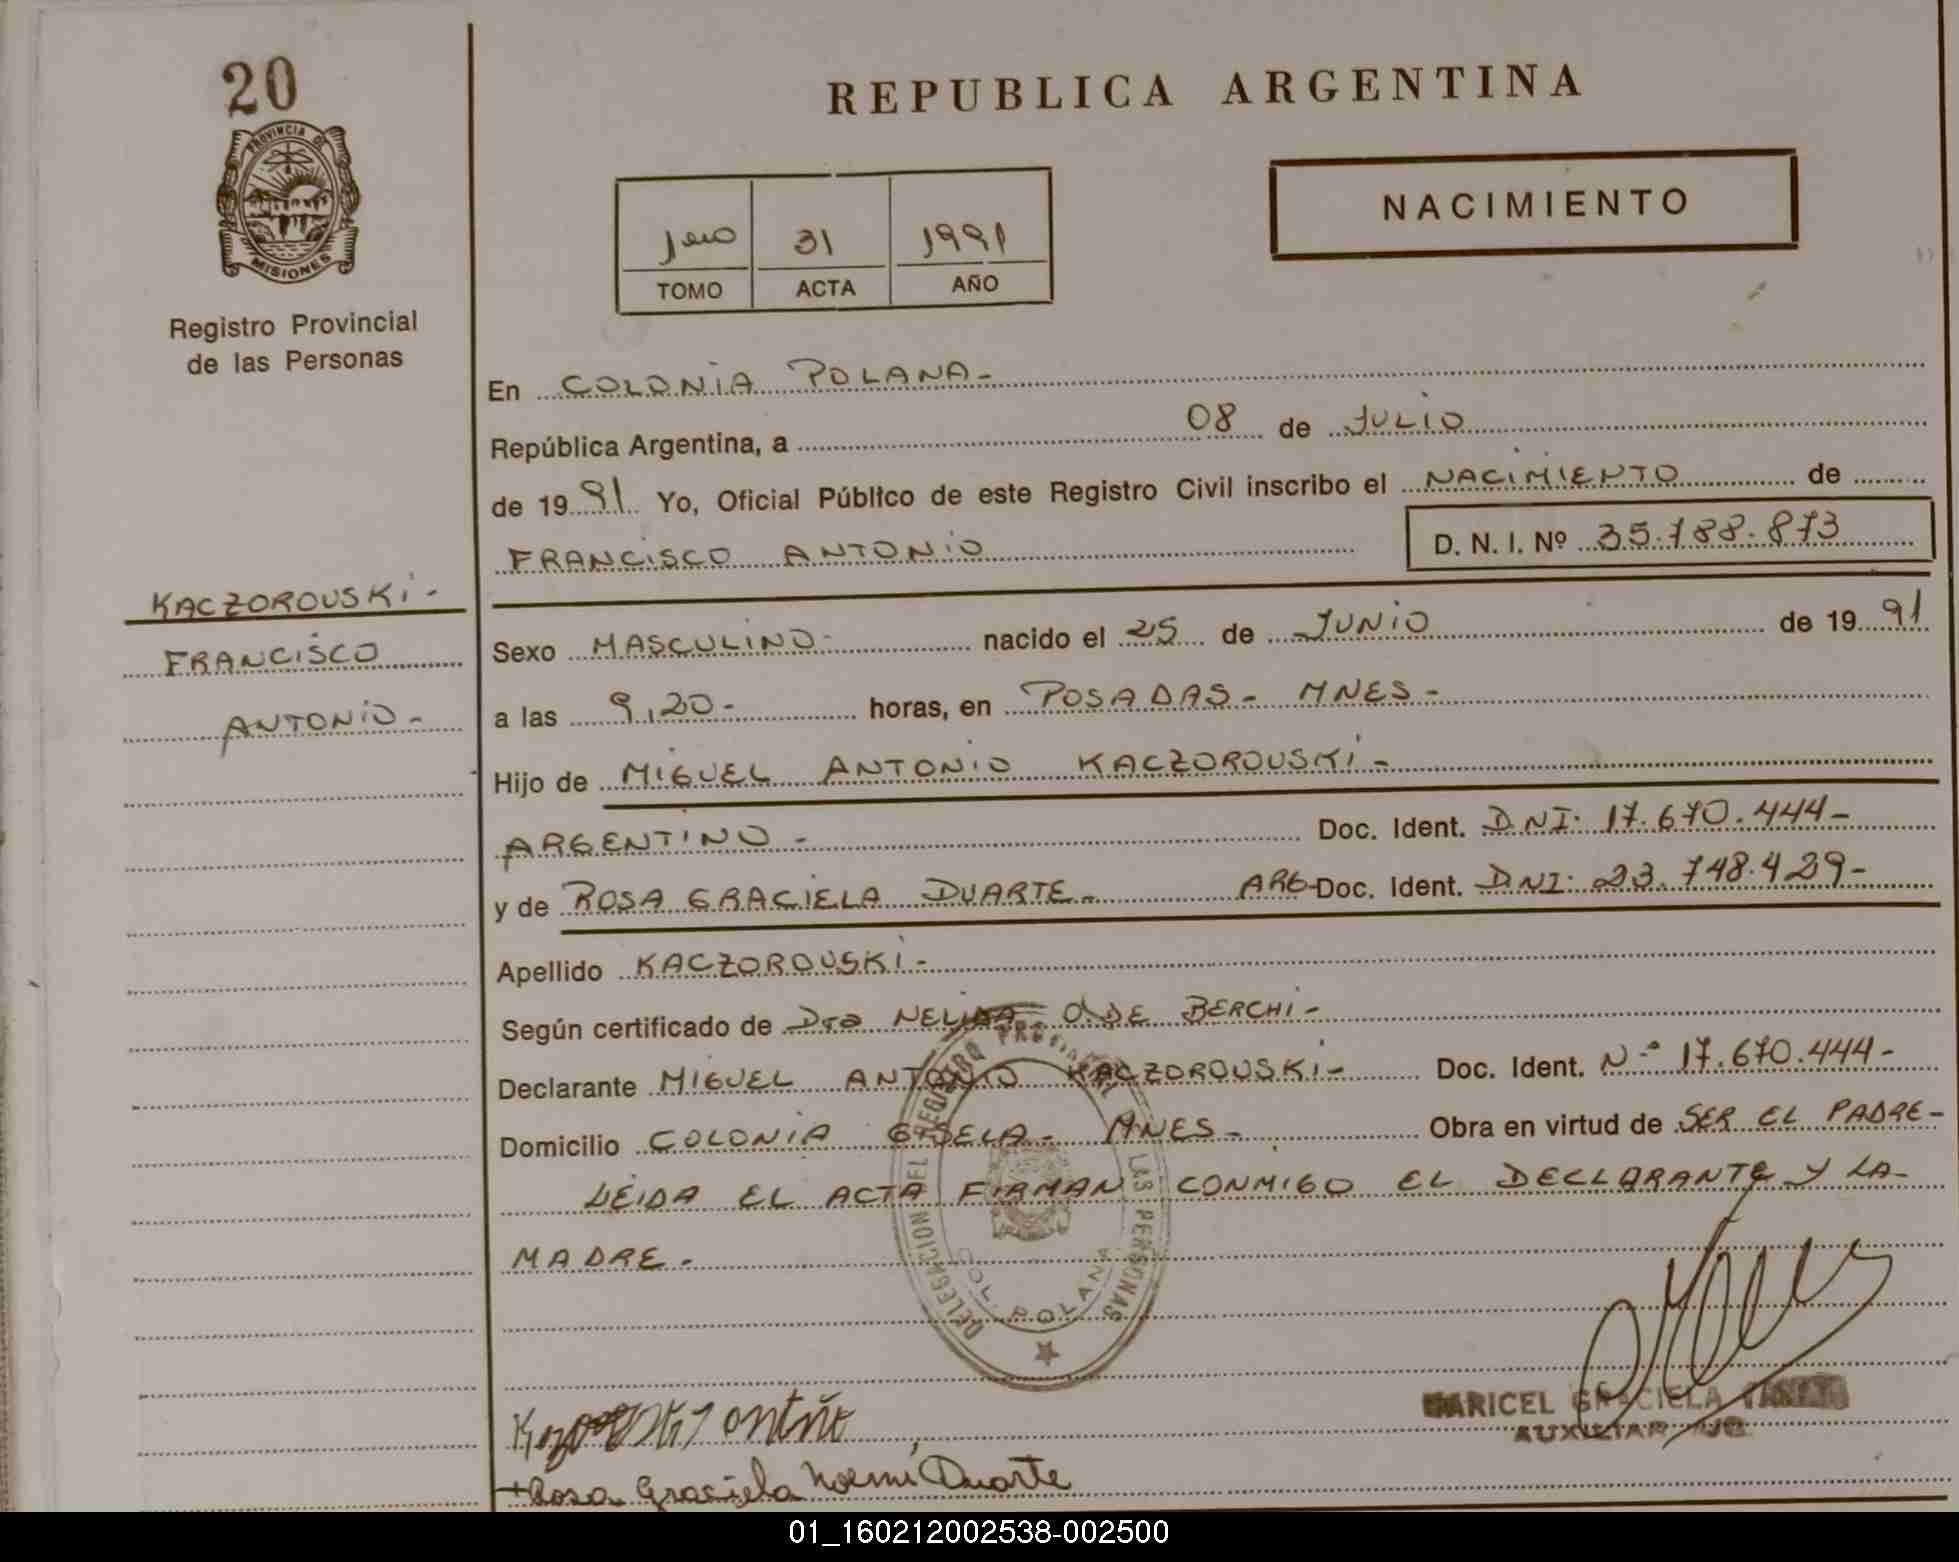 20
PROVINCIA DE
MISIONES
Registro Provincial
de las Personas
REPUBLICA ARGENTINA
31 1991
TOMO ACTA AÑO
NACIMIENTO
En COLONIA POLANA-
República Argentina, a 08 de JULIO
de 1991 Yo, Oficial Público de este Registro Civil inscribo el NACIMIENTO de
FRANCISCO ANTONIO D. N. I. Nº 35.788.873
KACZOROUSKI-
FRANCISCO
ANTONIO-
Sexo MASCULINO- nacido el 25 de JUNIO de 1991
a las 9,20- horas, en POSADAS- MNES-
Hijo de MIGUEL ANTONIO KACZOROUSKI-
ARGENTINO- Doc. Ident. DNI. 17.670.444-
y de ROSA GRACIELA DUARTE- ARG- Doc. Ident. DNI. 23.748.429-
Apellido KACZOROUSKI-
Según certificado de Dra NELIDA O. DE BERCHI-
Declarante MIGUEL ANTONIO KACZOROUSKI- Doc. Ident. Nº 17.670.444-
Domicilio COLONIA GISELA- MNES- Obra en virtud de SER EL PADRE-
LEIDA EL ACTA FIRMAN CONMIGO EL DECLARANTE Y LA-
MADRE-
DELEGACION DEL REGISTRO PROVINCIAL LAS PERSONAS
COL. POLANA
MARICEL GRACIELA
AUXILIAR
Rosa Graciela Noemí Duarte
01_160212002538-002500